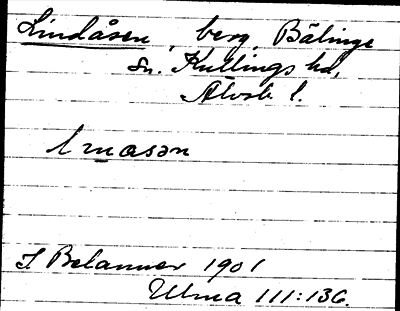 Lindåsen, berg Bälinge
sn. Kullings hd,
Älvsb. l.
I Belanner 1901
Ulma 111:136.